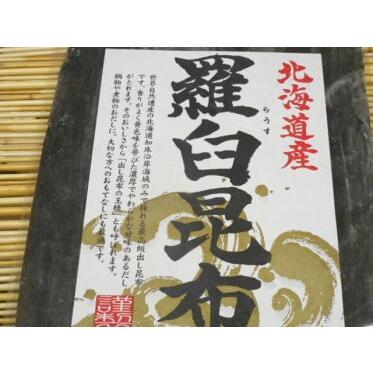 北海道産
らうす
羅臼昆布
世界自然遺産の北海道知床沿岸海域のみで採れる最高級出し昆布
です。香りがよく黄色味を帯びた濃厚でやわらかな甘味のあるだし
がとれます。そのおいしさから「出し昆布の王様」とも呼ばれます。
鍋物や煮物のおだしに。大切な方へのおもてなしにも最適です。